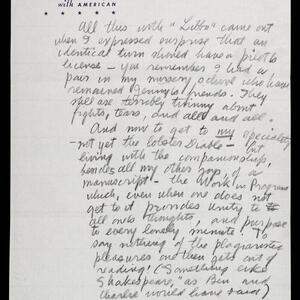 with AMERICAN
All this with "Libba" came out
when I expressed surprise that an
identical twin should have a pilot's
license – you remember I had a
pair in my nursery school who have
remained Jenny's friends. They
still are terribly twinny about
fights, tears, and all and all.
And now to get to my specialty
– not yet the lobster Diablo – but
living with the companionship,
besides all my other joys, of a
manuscript – the Work in Progress
which, even when one does not
get to it provides unity to
all one's thoughts, and purpose
to every lonely minute – to
say nothing of the plagiaristic
pleasures one then gets out of
reading! (Something like
Shakespeare, as Ben and
Charlie would have said)